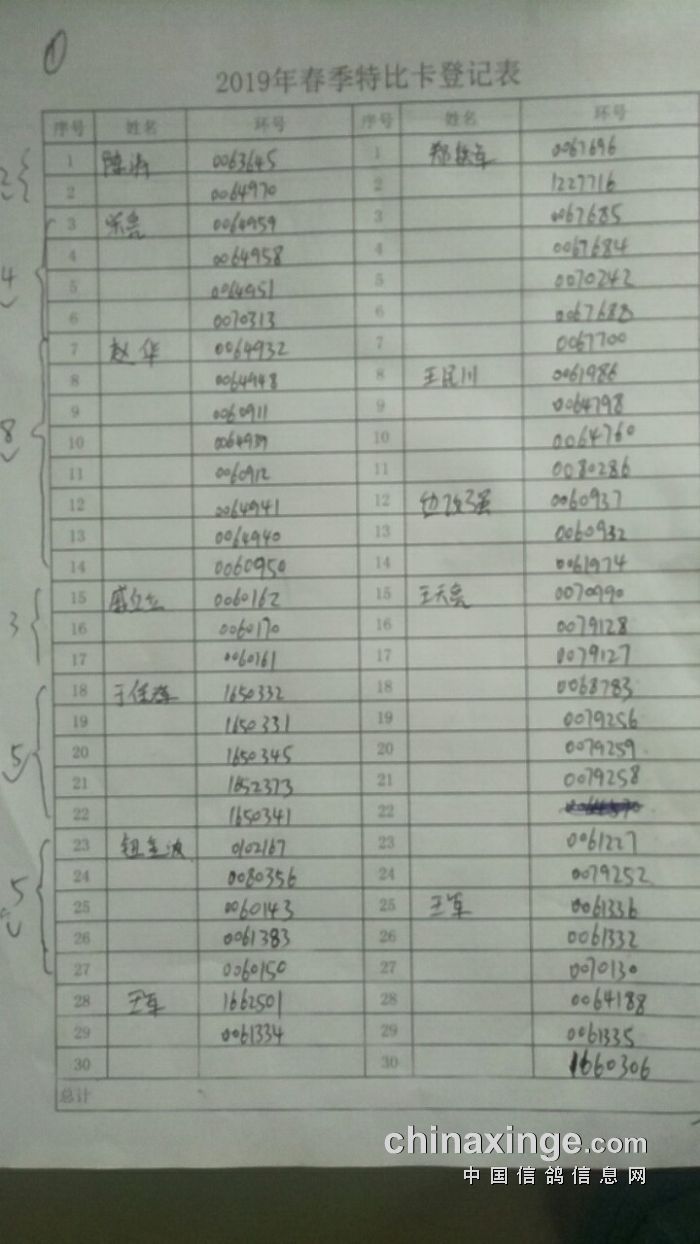 ①
2019年春季特比卡登记表
序号 姓名 环号 序号 姓名 环号
1 陈涛 0063645 1 郑铁军 0067696
2 0064970 2 1227716
3 宋亮 0064959 3 0067685
4 0064958 4 0067684
5 0064951 5 0070242
6 0070313 6 0067688
7 赵华 0064932 7 0067700
8 0064948 8 王民川 0061986
9 0060911 9 0064798
10 0064939 10 0064760
11 0060912 11 0080286
12 0064941 12 强 0060937
13 0064940 13 0060932
14 0060950 14 0061974
15 0060162 15 王天亮 0070990
16 0060170 16 0079128
17 0060161 17 0079127
18 于佳 1650332 18 0068783
19 1650331 19 0079256
20 1650345 20 0079259
21 1652373 21 0079258
22 1650341 22
23 钮金波 0102167 23 0061227
24 0080356 24 0079252
25 0060143 25 王军 0061336
26 0061383 26 0061332
27 0060150 27 0070130
28 王军 1662501 28 0064188
29 0061334 29 0061335
30 30 1660306
总计
2
4
8
3
5
5
chinaxinge.com
中国信鸽信息网